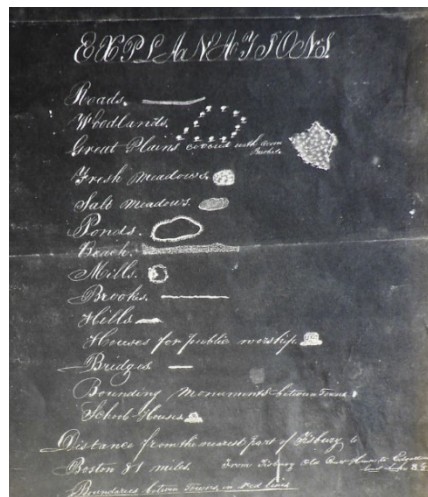 EXPLANATIONS
Roads.
Woodlands.
Great Plains covered with
Fresh meadows.
Salt meadows.
Ponds.
Beach.
Mills.
Brooks.
Hills.
Houses for public worship.
Bridges
Bounding Monuments between Towns.
School Houses.
Distance from the nearest part of Tisbury to
Boston 81 miles. From Tisbury
Boundaries between Towns in red lines